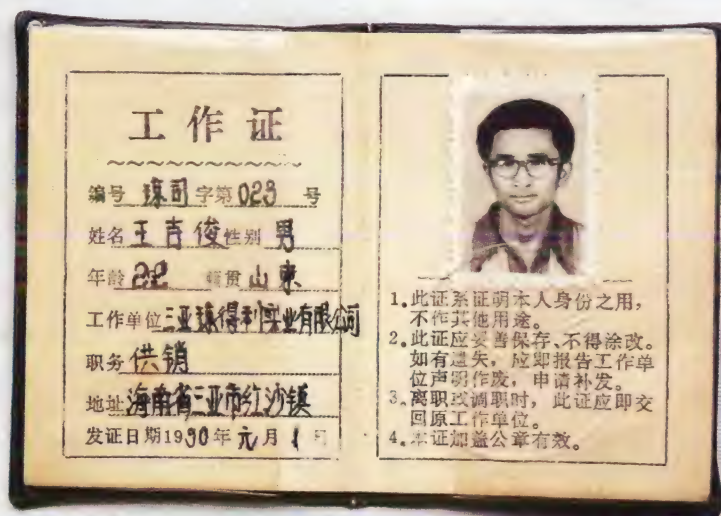 工作证
编号 琼司字第023号
姓名 王吉俊 性别 男
年龄 籍贯 山东
工作单位 三亚琼得利实业有限公司
职务 供销
地址 海南省三亚市红沙镇
发证日期1990年元月1日
1。此证系证明本人身份之用，
不作其他用途。
2。此证应妥善保存、不得涂改。
如有遗失，应即报告工作单
位声明作废，申请补发。
3。离职或调职时，此证应即交
回原工作单位。
4。本证加盖公章有效。